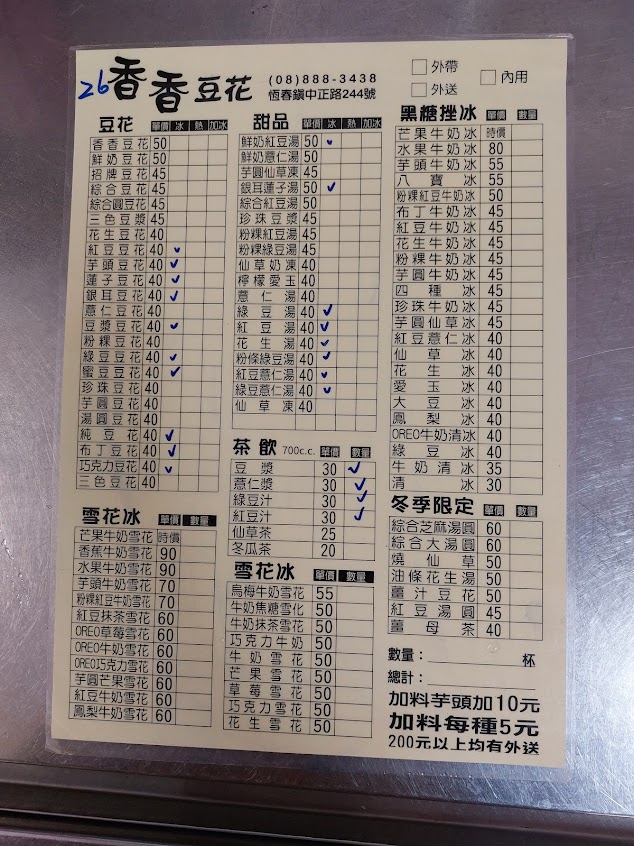 26
香香豆花
(08)888-3438
恆春鎮中正路244號
外帶
外送
內用
豆花 單價 冰 熱 加冰
香香豆花 50
鮮奶豆花 50
招牌豆花 45
綜合豆花 45
綜合圓豆花 45
三色豆漿 45
花生豆花 40
紅豆豆花 40 ✓
芋頭豆花 40 ✓
蓮子豆花 40 ✓
銀耳豆花 40 ✓
薏仁豆花 40
豆漿豆花 40 ✓
粉粿豆花 40
綠豆豆花 40 ✓
蜜豆豆花 40 ✓
珍珠豆花 40
芋圓豆花 40
湯圓豆花 40
純豆花 40 ✓
布丁豆花 40 ✓
巧克力豆花 40 ✓
三色豆花 40
雪花冰 單價 數量
芒果牛奶雪花 時價
香蕉牛奶雪花 90
水果牛奶雪花 90
芋頭牛奶雪花 70
粉粿紅豆牛奶雪花 70
紅豆抹茶雪花 60
OREO草莓雪花 60
OREO牛奶雪花 60
OREO巧克力雪花 60
芋圓芒果雪花 60
紅豆牛奶雪花 60
鳳梨牛奶雪花 60
甜品 單價 冰 熱 加冰
鮮奶紅豆湯 50 ✓
鮮奶薏仁湯 50
芋圓仙草凍 45
銀耳蓮子湯 50 ✓
綜合紅豆湯 50
珍珠豆漿 45
粉粿紅豆湯 45
粉粿綠豆湯 45
仙草奶凍 40
檸檬愛玉 40
薏仁湯 40
綠豆湯 40 ✓
紅豆湯 40 ✓
花生湯 40 ✓
粉條綠豆湯 40 ✓
紅豆薏仁湯 40 ✓
綠豆薏仁湯 40 ✓
仙草凍 40
茶飲 700c.c. 單價 數量
豆漿 30 ✓
薏仁漿 30 ✓
綠豆汁 30 ✓
紅豆汁 30 ✓
仙草茶 25
冬瓜茶 20
雪花冰 單價 數量
烏梅牛奶雪花 55
牛奶焦糖雪化 50
牛奶抹茶雪花 50
巧克力牛奶 50
牛奶雪花 50
芒果雪花 50
草莓雪花 50
巧克力雪花 50
花生雪花 50
黑糖挫冰 單價 數量
芒果牛奶冰 時價
水果牛奶冰 80
芋頭牛奶冰 55
八寶冰 55
粉粿紅豆牛奶冰 50
布丁牛奶冰 45
紅豆牛奶冰 45
花生牛奶冰 45
粉粿牛奶冰 45
芋圓牛奶冰 45
四種冰 45
珍珠牛奶冰 45
芋圓仙草冰 45
紅豆薏仁冰 40
仙草冰 40
花生冰 40
愛玉冰 40
大豆冰 40
鳳梨冰 40
OREO牛奶清冰 40
綠豆冰 40
牛奶清冰 35
清冰 30
冬季限定 單價 數量
綜合芝麻湯圓 60
綜合大湯圓 60
燒仙草 50
油條花生湯 50
薑汁豆花 50
紅豆湯圓 45
薑母茶 40
數量：＿＿＿＿＿杯
總計：＿＿＿＿＿
加料芋頭加10元
加料每種5元
200元以上均有外送